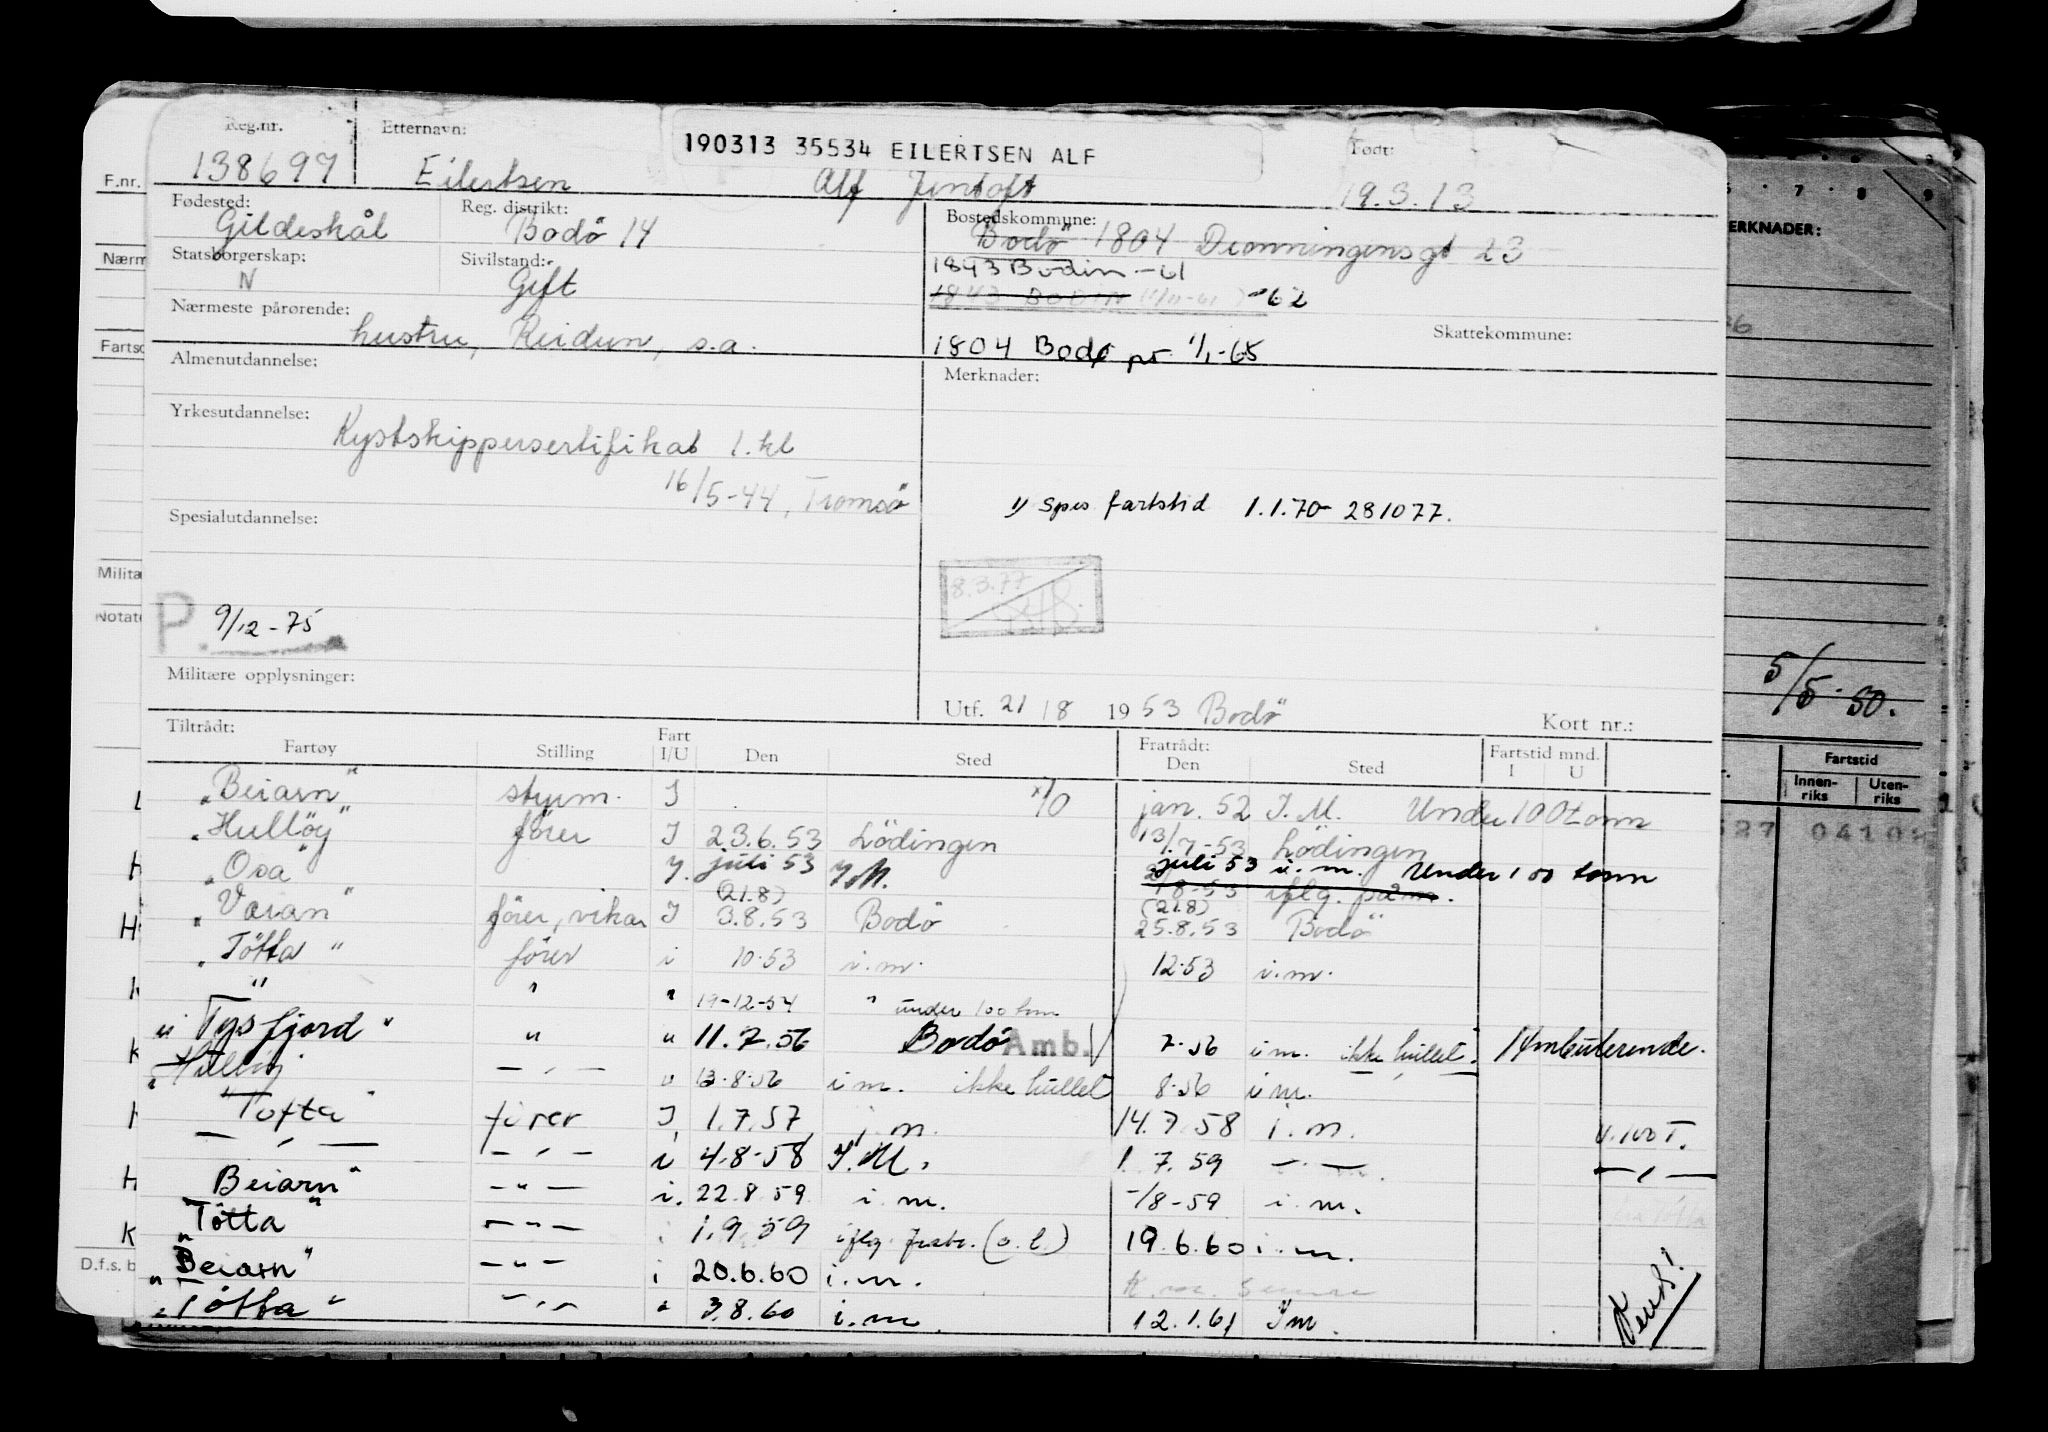 Reg.nr. Etternavn: 190313 35534 EILERTSEN ALF Født:
138697 Eilertsen Alf Jentoft 19.3.13
Fødested: Reg. distrikt: Bostedskommune:
Gildeskål Bodö 14 Bodö 1804 Dronningensgt 23
Statsborgerskap: Sivilstand: 1843 Bodin -61
N Gift 1843 BODIN -62
Nærmeste pårørende: Skattekommune:
hustru, Reidun, s.a. 1804 Bodø pr. 1/1-65
Almenutdannelse: Merknader:
Yrkesutdannelse:
Kystskippersertifikat 1.kl
16/5-44, Tromsö
1) Spes fartstid 1.1.70- 281077.
Spesialutdannelse:
8.3.77
P. 9/12-75
Militære opplysninger:
Utf. 21/8 1953 Bodö Kort nr.:
Tiltrådt: Fratrådt: Fartstid mnd.
Fartøy Stilling Fart I/U Den Sted Den Sted I U
"Beiarn" styrm. I jan. 52 I.M. Under 100 tonn
"Hulløy" förer I 23.6.53 Lödingen 13/7-53 Lödingen
"Osa" juli 53 I.M. juli 53 i.m. Under 100 tonn
(21.8) 18-53 iflg. (21.8)
"Varan" förer, vikar I 3.8.53 Bodö 25.8.53 Bodö
"Tötta" förer i 10.53 i.m. 12.53 i.m.
" " " 19-12-54 " under 100 tonn
"Tysfjord" " " 11.7.56 Bodö Amb. 7.56 i.m. ikke hullet. Ambulerende.
— " — " 13.8.56 i.m. ikke hullet 8.56 i.m.
"Tøtta" fører I 1.7.57 i.m. 14.7.58 i.m. u.100 T.
— " — — " — i 4.8-58 I.M. 1.7.59 — " — — " —
Beiarn" — " — i. 22.8.59 i.m. -/8-59 i.m.
"Tøtta" — " — i 1.9.59 19.6.60 i.m.
"Beiarn" — " — i 20.6.60 i.m.
"Tøtta" — " — " 3.8.60 i.m. 12.1.61 Im.
Vend!
F.nr.
Nærm
Fartso
Milita
Notate
D.f.s. b
7 8 9
ERKNADER:
5/5-50.
Fartstid
Innen-riks Uten-riks